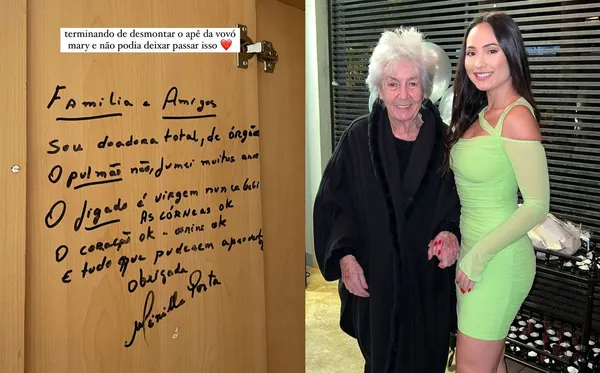 terminando de desmontar o apê da vovó
mary e não podia deixar passar isso ❤️
Família e Amigos
Sou doadora total, de órgãos
O pulmão não, fumei muitos anos
O fígado é virgem nunca bebi
AS CÓRNEAS OK
O coração ok - ok
E tudo que puderem aproveitar
Obrigada
Costa